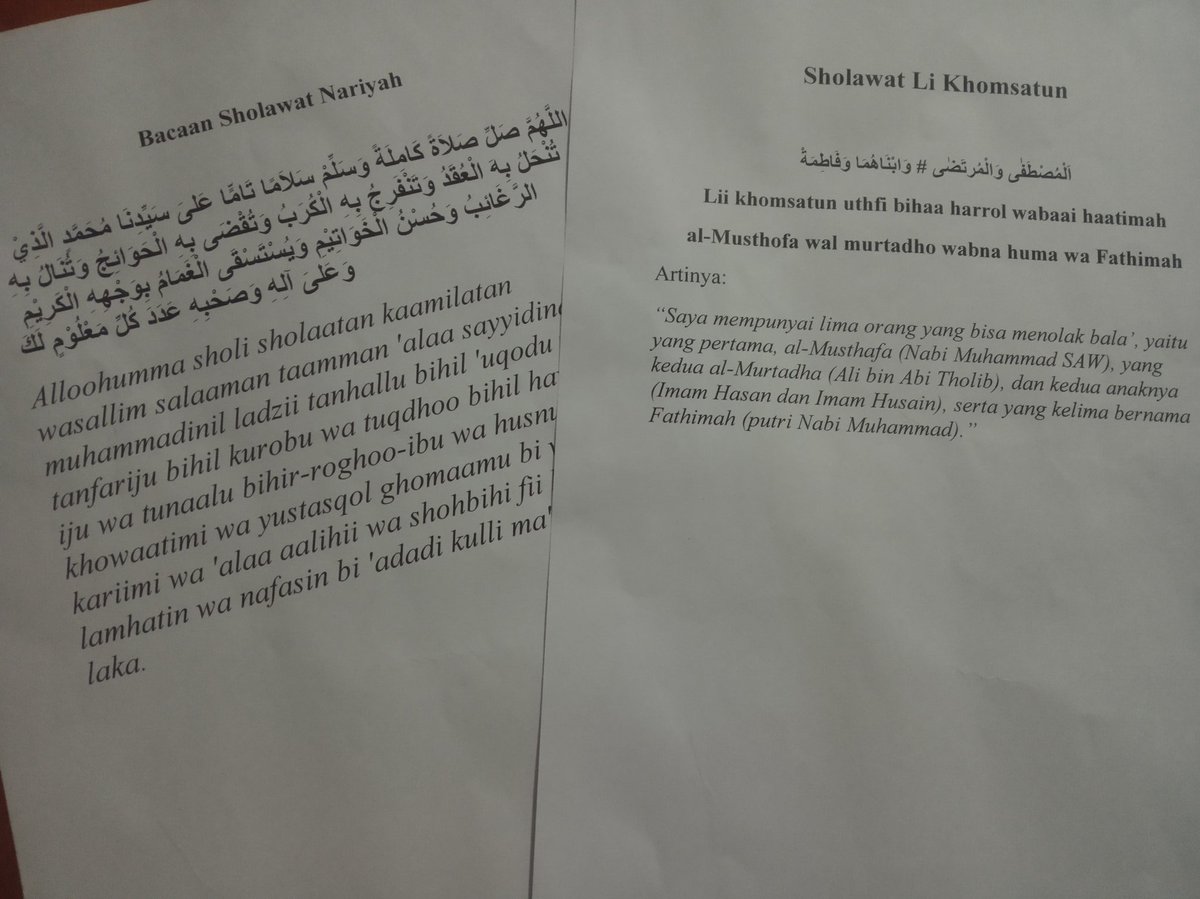 Bacaan Sholawat Nariyah
اللَّهُمَّ صَلِّ صَلاَةً كَامِلَةً وَسَلِّمْ سَلاَمًا تَامًّا عَلىَ سَيِّدِنَا مُحَمَّدٍ الَّذِيْ
تُنْحَلُ بِهِ الْعُقَدُ وَتَنْفَرِجُ بِهِ الْكُرَبُ وَتُقْضَى بِهِ الْحَوَائِجُ وَتُنَالُ بِهِ
الرَّغَائِبُ وَحُسْنُ الْخَوَاتِيْمِ وَيُسْتَسْقَى الْغَمَامُ بِوَجْهِهِ الْكَرِيْمِ
وَعَلىَ آلِهِ وَصَحْبِهِ عَدَدَ كُلِّ مَعْلُوْمٍ لَكَ
Alloohumma sholi sholaatan kaamilatan
wasallim salaaman taamman 'alaa sayyidina
muhammadinil ladzii tanhallu bihil 'uqodu
tanfariju bihil kurobu wa tuqdhoo bihil
iju wa tunaalu bihir-roghoo-ibu wa husnu
khowaatimi wa yustasqol ghomaamu bi
kariimi wa 'alaa aalihii wa shohbihi fii
lamhatin wa nafasin bi 'adadi kulli
laka.
Sholawat Li Khomsatun
اَلْمُصْطَفٰى وَالْمُرتَضٰى # وَابْنَاهُمَا وَفَاطِمَةْ
Lii khomsatun uthfi bihaa harrol wabaai haatimah
al-Musthofa wal murtadho wabna huma wa Fathimah
Artinya:
“Saya mempunyai lima orang yang bisa menolak bala’, yaitu
yang pertama, al-Musthafa (Nabi Muhammad SAW), yang
kedua al-Murtadha (Ali bin Abi Tholib), dan kedua anaknya
(Imam Hasan dan Imam Husain), serta yang kelima bernama
Fathimah (putri Nabi Muhammad).”